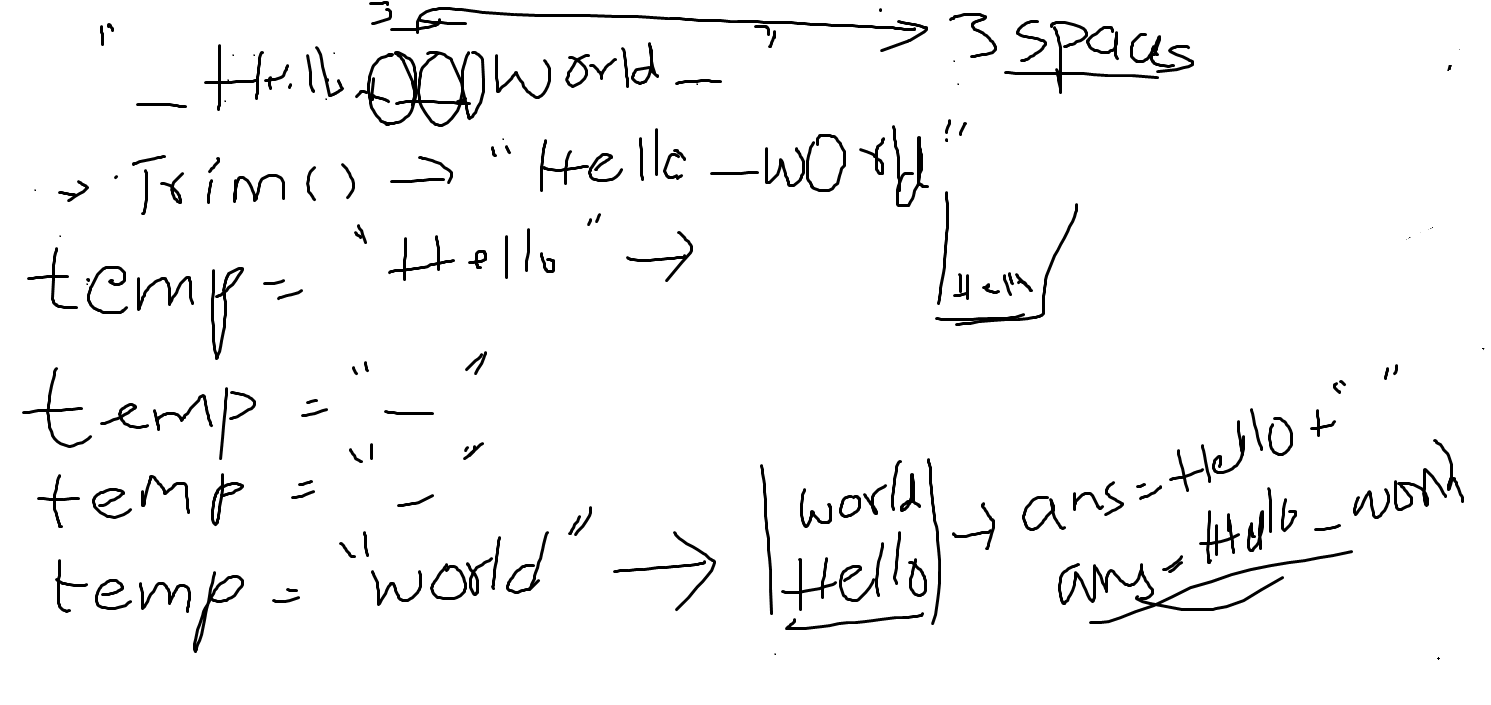 3
" _ Hello___World _ " → 3 spaces
→ Trim() → "Hello _World"
temp = "Hello" → Hello
temp = "_"
temp = "_"
temp = "world" → world
Hello
→ ans = Hello + " "
ans = Hello _ world